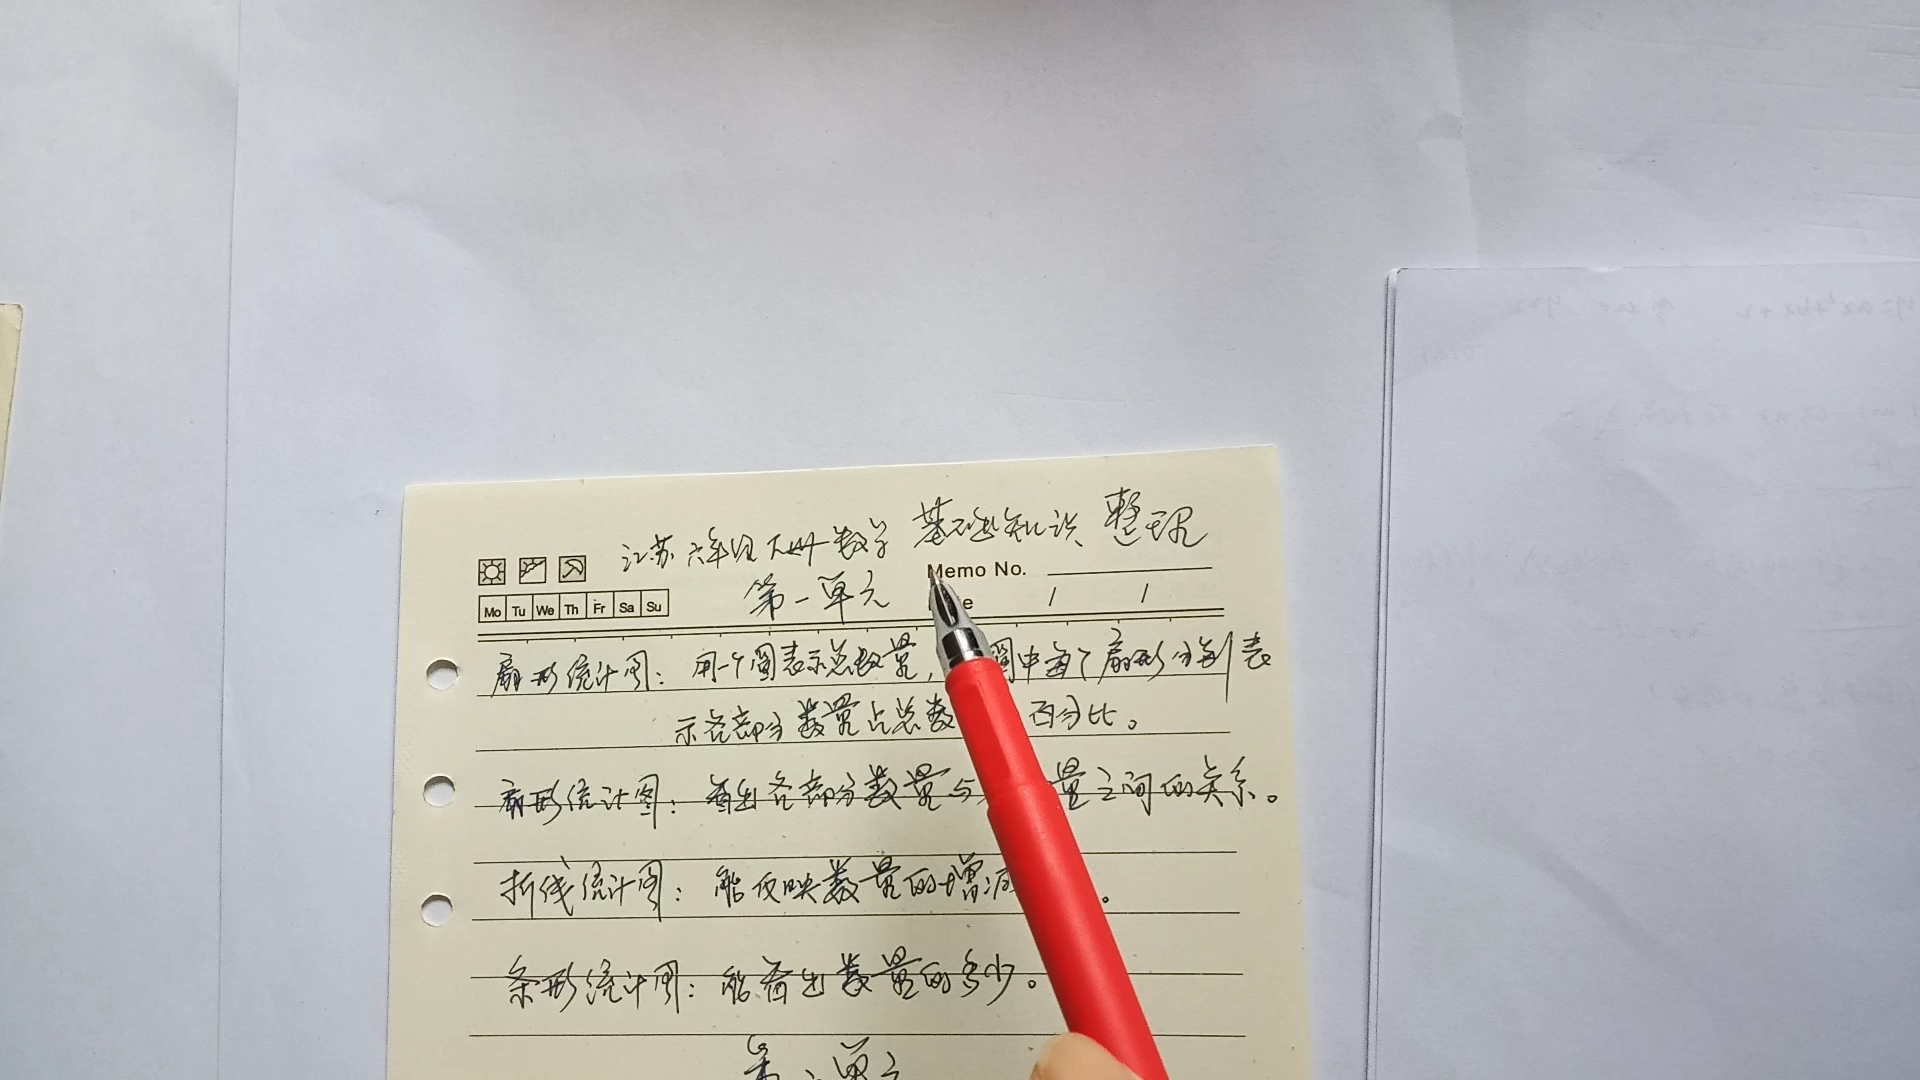 江苏六年级下册数学 基础知识 整理
Memo No.
Mo Tu We Th Fr Sa Su
第一单元
/ /
扇形统计图：用一个圆表示总数量，圆中每个扇形分别表
示各部分数量占总数 百分比。
扇形统计图：看出各部分数量与 量之间的关系。
折线统计图：能反映数量的增减 。
条形统计图：能看出数量的多少。
第二单元